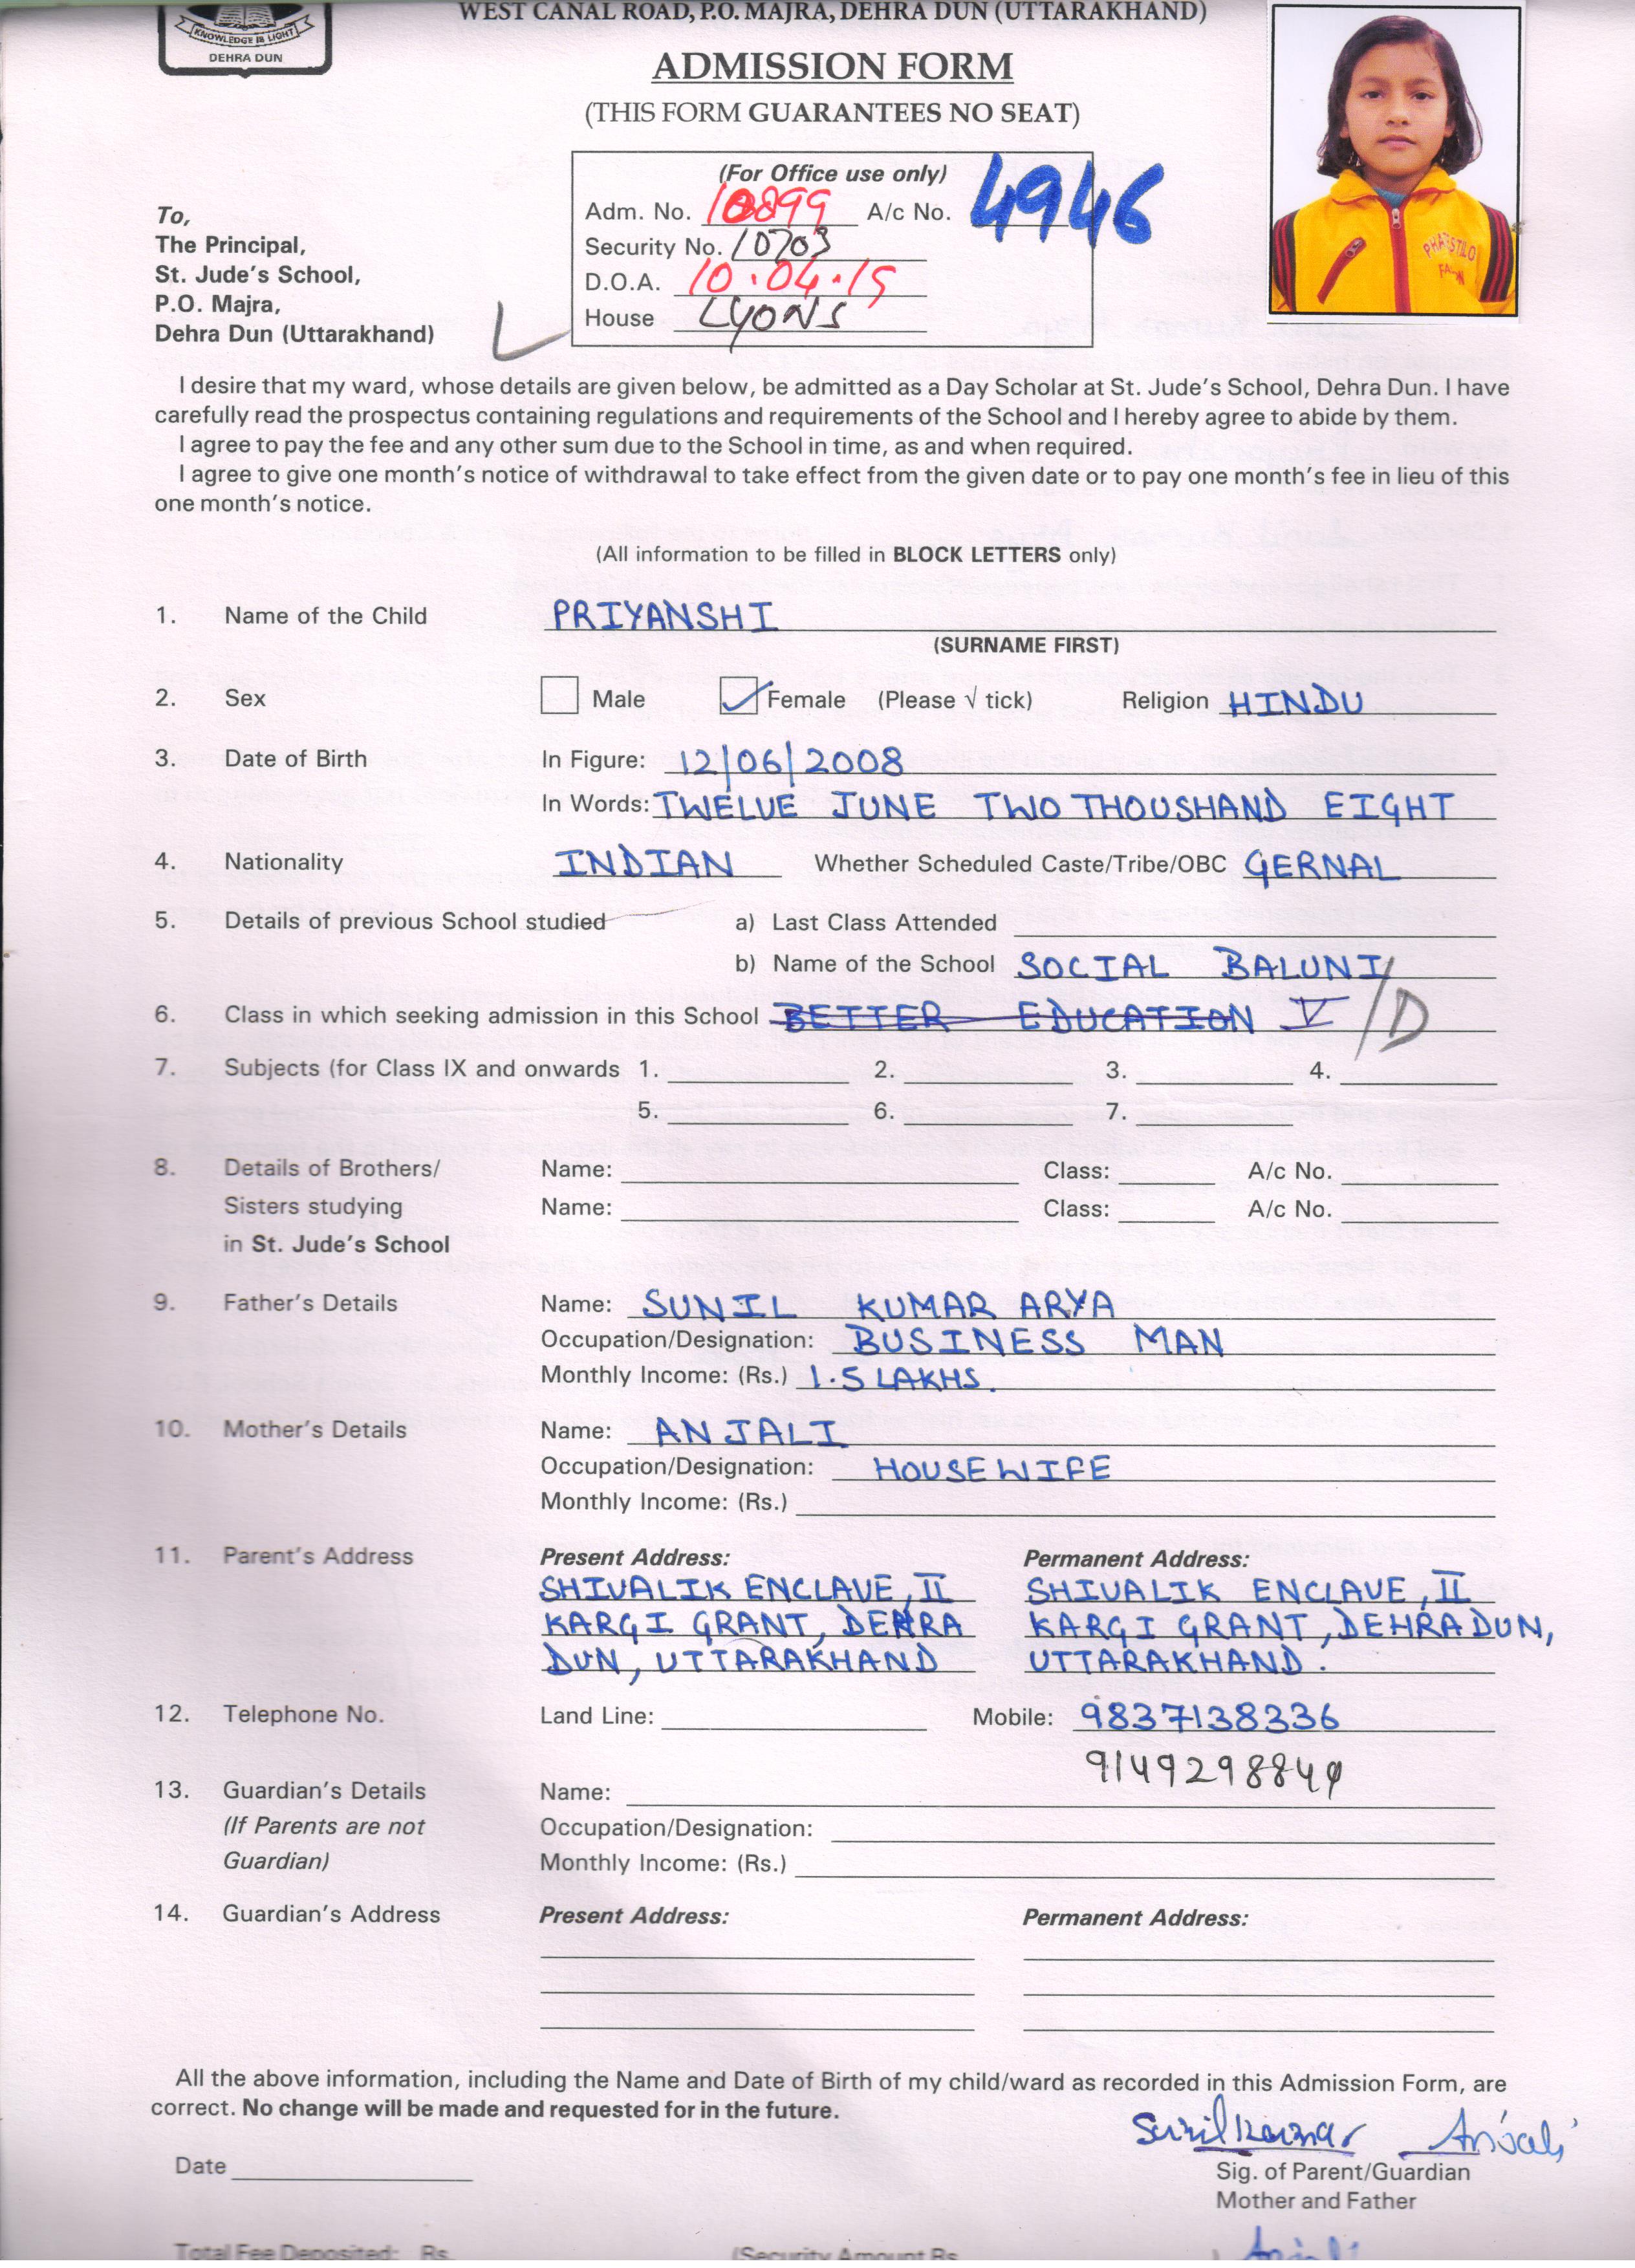 WEST CANAL ROAD, P.O. MAJRA, DEHRA DUN (UTTARAKHAND)
KNOWLEDGE IS LIGHT
DEHRA DUN
ADMISSION FORM
(THIS FORM GUARANTEES NO SEAT)
(For Office use only)
Adm. No. 10899 A/c No. 4946
Security No. 10703
D.O.A. 10.04.15
House LYONS
To,
The Principal,
St. Jude's School,
P.O. Majra,
Dehra Dun (Uttarakhand)
I desire that my ward, whose details are given below, be admitted as a Day Scholar at St. Jude's School, Dehra Dun. I have
carefully read the prospectus containing regulations and requirements of the School and I hereby agree to abide by them.
I agree to pay the fee and any other sum due to the School in time, as and when required.
I agree to give one month's notice of withdrawal to take effect from the given date or to pay one month's fee in lieu of this
one month's notice.
(All information to be filled in BLOCK LETTERS only)
1. Name of the Child PRIYANSHI
(SURNAME FIRST)
2. Sex Male Female (Please √ tick) Religion HINDU
3. Date of Birth In Figure: 12/06/2008
In Words: TWELVE JUNE TWO THOUSHAND EIGHT
4. Nationality INDIAN Whether Scheduled Caste/Tribe/OBC GERNAL
5. Details of previous School studied a) Last Class Attended
b) Name of the School SOCIAL BALUNI
6. Class in which seeking admission in this School BETTER EDUCATION V/D
7. Subjects (for Class IX and onwards 1. 2. 3. 4.
5. 6. 7.
8. Details of Brothers/ Name: Class: A/c No.
Sisters studying Name: Class: A/c No.
in St. Jude's School
9. Father's Details Name: SUNIL KUMAR ARYA
Occupation/Designation: BUSINESS MAN
Monthly Income: (Rs.) 1.5 LAKHS.
10. Mother's Details Name: ANJALI
Occupation/Designation: HOUSEWIFE
Monthly Income: (Rs.)
11. Parent's Address Present Address: Permanent Address:
SHIVALIK ENCLAVE, II SHIVALIK ENCLAVE, II
KARGI GRANT, DEHRA KARGI GRANT, DEHRADUN,
DUN, UTTARAKHAND UTTARAKHAND.
12. Telephone No. Land Line: Mobile: 9837138336
13. Guardian's Details Name:
(If Parents are not Occupation/Designation:
Guardian) Monthly Income: (Rs.)
14. Guardian's Address Present Address: Permanent Address:
All the above information, including the Name and Date of Birth of my child/ward as recorded in this Admission Form, are
correct. No change will be made and requested for in the future.
Sunil Kumar Anjali
Date Sig. of Parent/Guardian
Mother and Father
Total Fee Deposited: Rs. (Security Amount Rs. Anjali